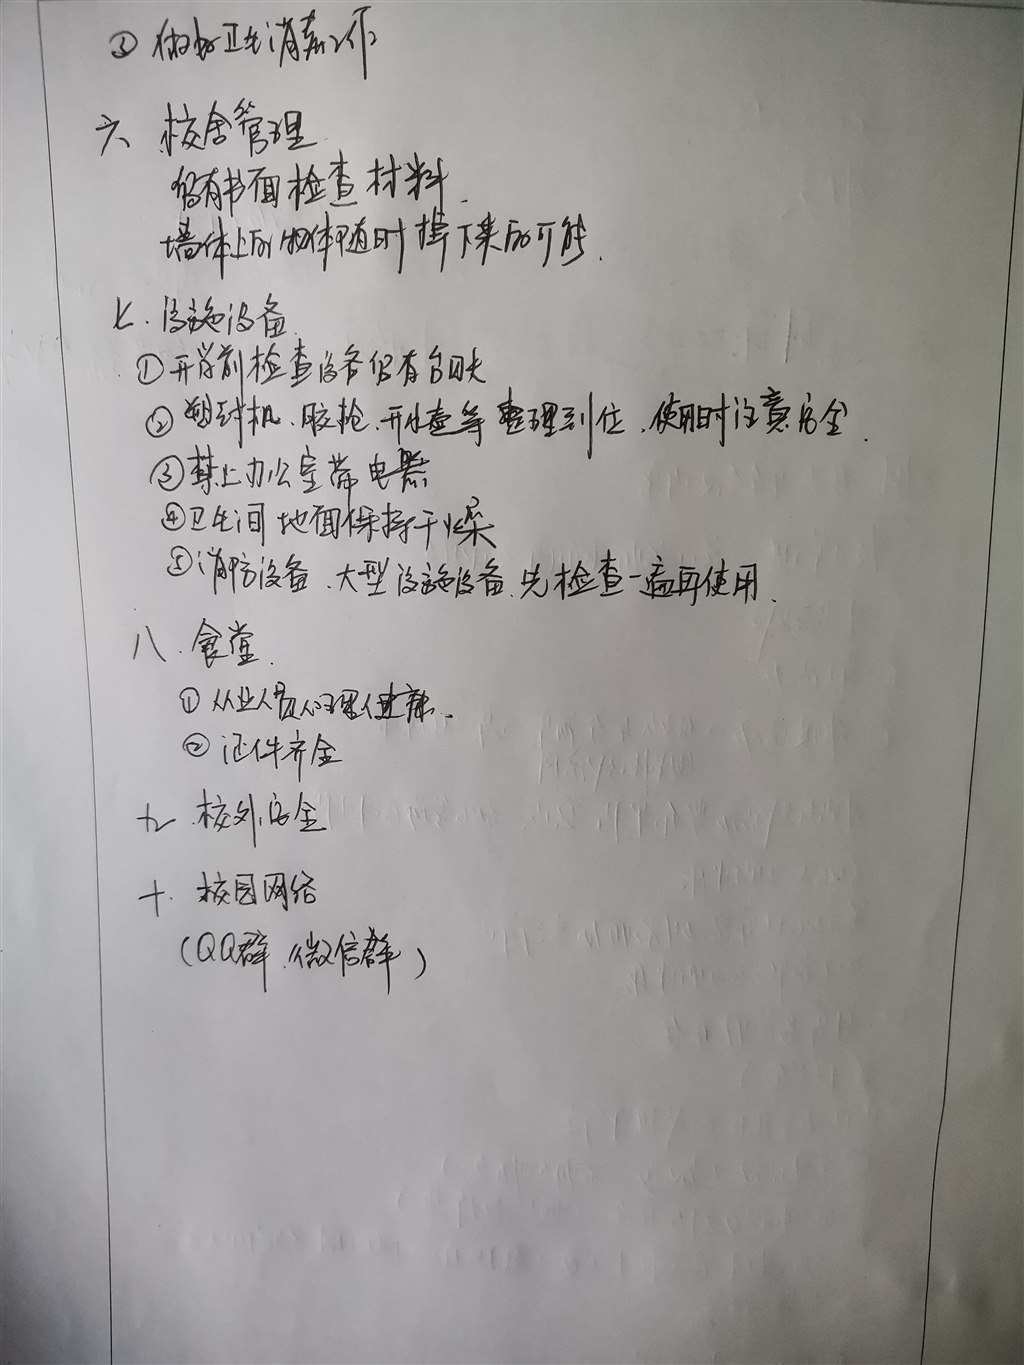 ③ 做好卫生消毒工作
六 校舍管理
留有书面检查材料.
墙体上的物体随时掉下来的可能.
七. 设施设备.
①开学前检查设备留有台账
②塑封机、胶枪、开水壶等整理到位,使用时注意安全.
③禁止办公室带电器
④卫生间地面保持干燥
⑤消防设备、大型设施设备、先检查一遍再使用.
八. 食堂.
①从业人员心理健康.
②证件齐全
九 校外安全
十. 校园网络
(QQ群、微信群)